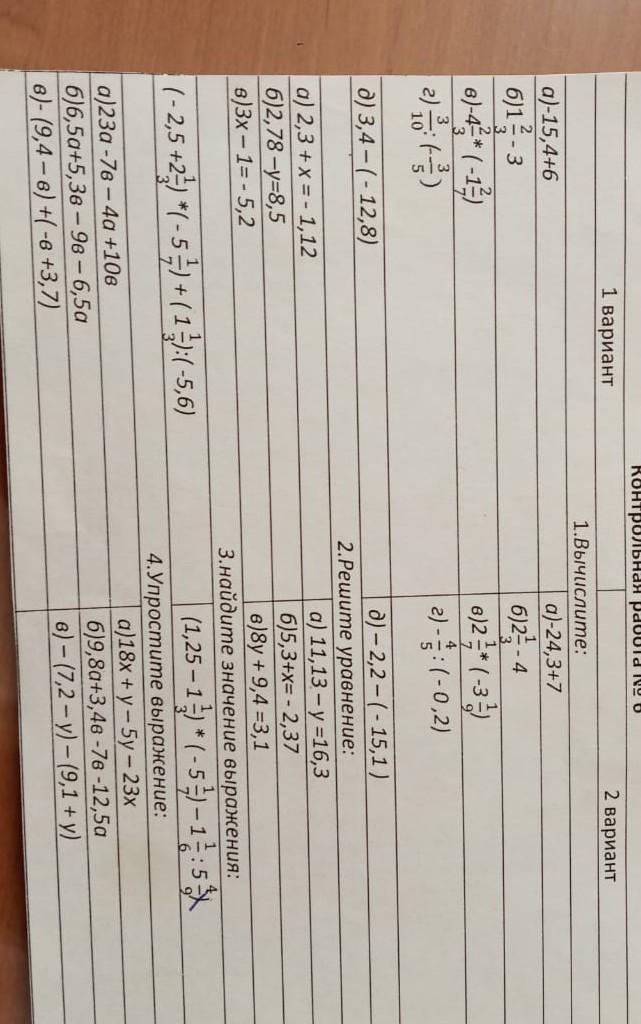 Контрольная работа № 6
1 вариант 2 вариант
1.Вычислите:
а)-15,4+6 а)-24,3+7
б)1 2/3 - 3 б)2 1/3 - 4
в)-4 2/3 * ( -1 2/7) в)2 1/7 * ( -3 1/9)
г) 3/10 : (- 3/5 ) г) - 4/5 : ( - 0,2)
д) 3,4 – ( - 12,8) д) – 2,2 – ( - 15,1 )
2.Решите уравнение:
а) 2,3 + х = - 1,12 а) 11,13 – у =16,3
б)2,78 –у=8,5 б)5,3+х= - 2,37
в)3х – 1= - 5,2 в)8у + 9,4 =3,1
3.найдите значение выражения:
( - 2,5 +2 1/3) *( - 5 1/7) + ( 1 1/3):( -5,6) (1,25 – 1 1/3) * ( - 5 1/7) – 1 1/6 : 5 4/9)
4.Упростите выражение:
а)23а -7в – 4а +10в а)18х + у – 5у – 23х
б)6,5а+5,3в – 9в – 6,5а б)9,8а+3,4в -7в -12,5а
в)- (9,4 – в) +( -в +3,7) в) – (7,2 – у) – (9,1 + у)